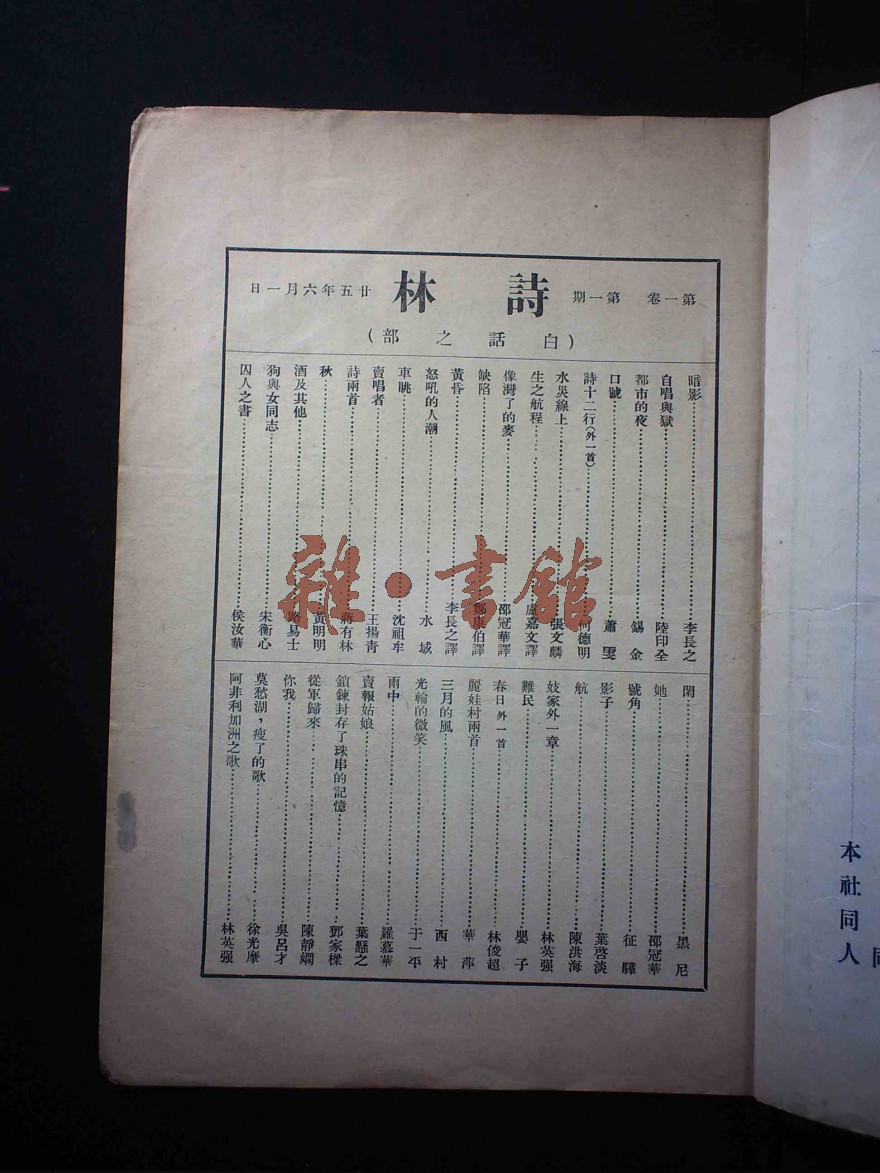 詩林
第一卷 第一期
廿五年六月一日
(白話之部)
暗影………李長之
自唱與獄………陸印全
都市的夜………錫金
口號………蕭雯
詩十二行(外一首)………何德明
水災線上………張文麟
生之航程………盧嘉文譯
像灣了的麥………邵冠華譯
缺陷………鄭康伯譯
黃昏………李長之譯
怒吼的人潮………水域
車眺………沈祖牟
賣唱者………王揚青
詩兩首………蔣有林
秋………黃明明
酒及其他………路易士
狗與女同志………宋衡心
囚人之書………侯汝華
閑………黑尼
她………邵冠華
號角………征驊
影子………葉啓淡
航………陳洪海
妓家外一章………林英强
難民………嬰子
春日外一首………林俊超
麗娃村兩首………華萍
三月的風………西村
光輪的微笑………于一平
雨中………羅慕華
賣報姑娘………葉懸之
鎖鍊封存了珠串的記憶………鄧家樑
從軍歸來………陳靜嫻
你我………吳呂才
莫愁湖，瘦了的歌………徐光摩
阿非利加洲之歌………林英强
本社同人
雜·書館